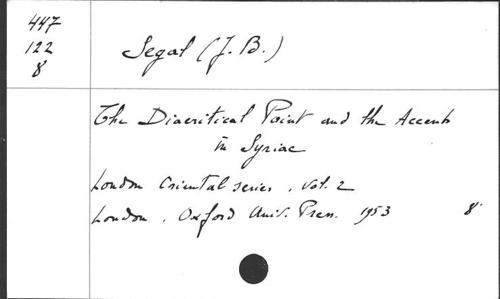 447
122
8
Segal (J. B.)
The Diacritical Point and the Accents
in Syriac
London Oriental series, vol. 2
London, Oxford Univ. Press. 1953 8°